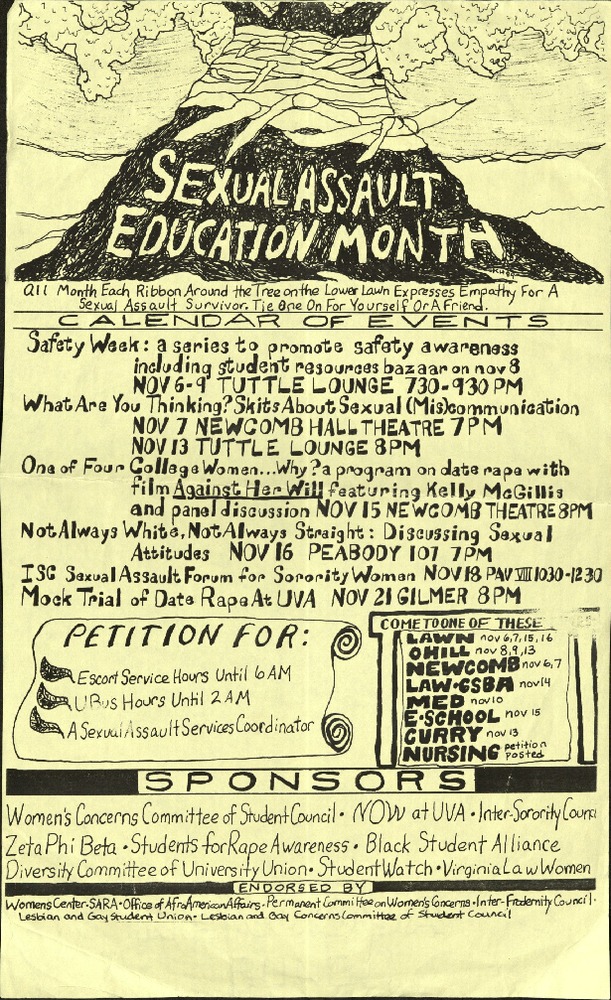 SEXUAL ASSAULT
EDUCATION MONTH
All Month Each Ribbon Around the Tree on the Lower Lawn Expresses Empathy For A
Sexual Assault Survivor. Tie One On For Yourself Or A Friend.
CALENDAR OF EVENTS
Safety Week: a series to promote safety awareness
including student resources bazaar on nov 8
NOV 6-9 TUTTLE LOUNGE 730-930 PM
What Are You Thinking? Skits About Sexual (Mis)communication
NOV 7 NEWCOMB HALL THEATRE 7 PM
NOV 13 TUTTLE LOUNGE 8PM
One of Four College Women...Why? a program on date rape with
film Against Her Will featuring Kelly McGillis
and panel discussion NOV 15 NEWCOMB THEATRE 8PM
Not Always White, Not Always Straight: Discussing Sexual
Attitudes NOV 16 PEABODY 107 7PM
ISC Sexual Assault Forum for Sorority Women NOV 18 PAV VIII 1030-1230
Mock Trial of Date Rape At UVA NOV 21 GILMER 8 PM
PETITION FOR:
Escort Service Hours Until 6 AM
UBus Hours Until 2 AM
A Sexual Assault Services Coordinator
COME TO ONE OF THESE
LAWN nov 6,7,15,16
OHILL nov 8,9,13
NEWCOMB nov 6,7
LAW·GSBA nov 14
MED nov 10
E·SCHOOL nov 15
CURRY nov 13
NURSING petition posted
SPONSORS
Women's Concerns Committee of Student Council · NOW at UVA · Inter-Sorority Council
Zeta Phi Beta · Students for Rape Awareness · Black Student Alliance
Diversity Committee of University Union · Student Watch · Virginia Law Women
ENDORSED BY
Womens Center · SARA · Office of Afro American Affairs · Permanent Committee on Women's Concerns · Inter-Fraternity Council ·
Lesbian and Gay Student Union · Lesbian and Gay Concerns Committee of Student Council